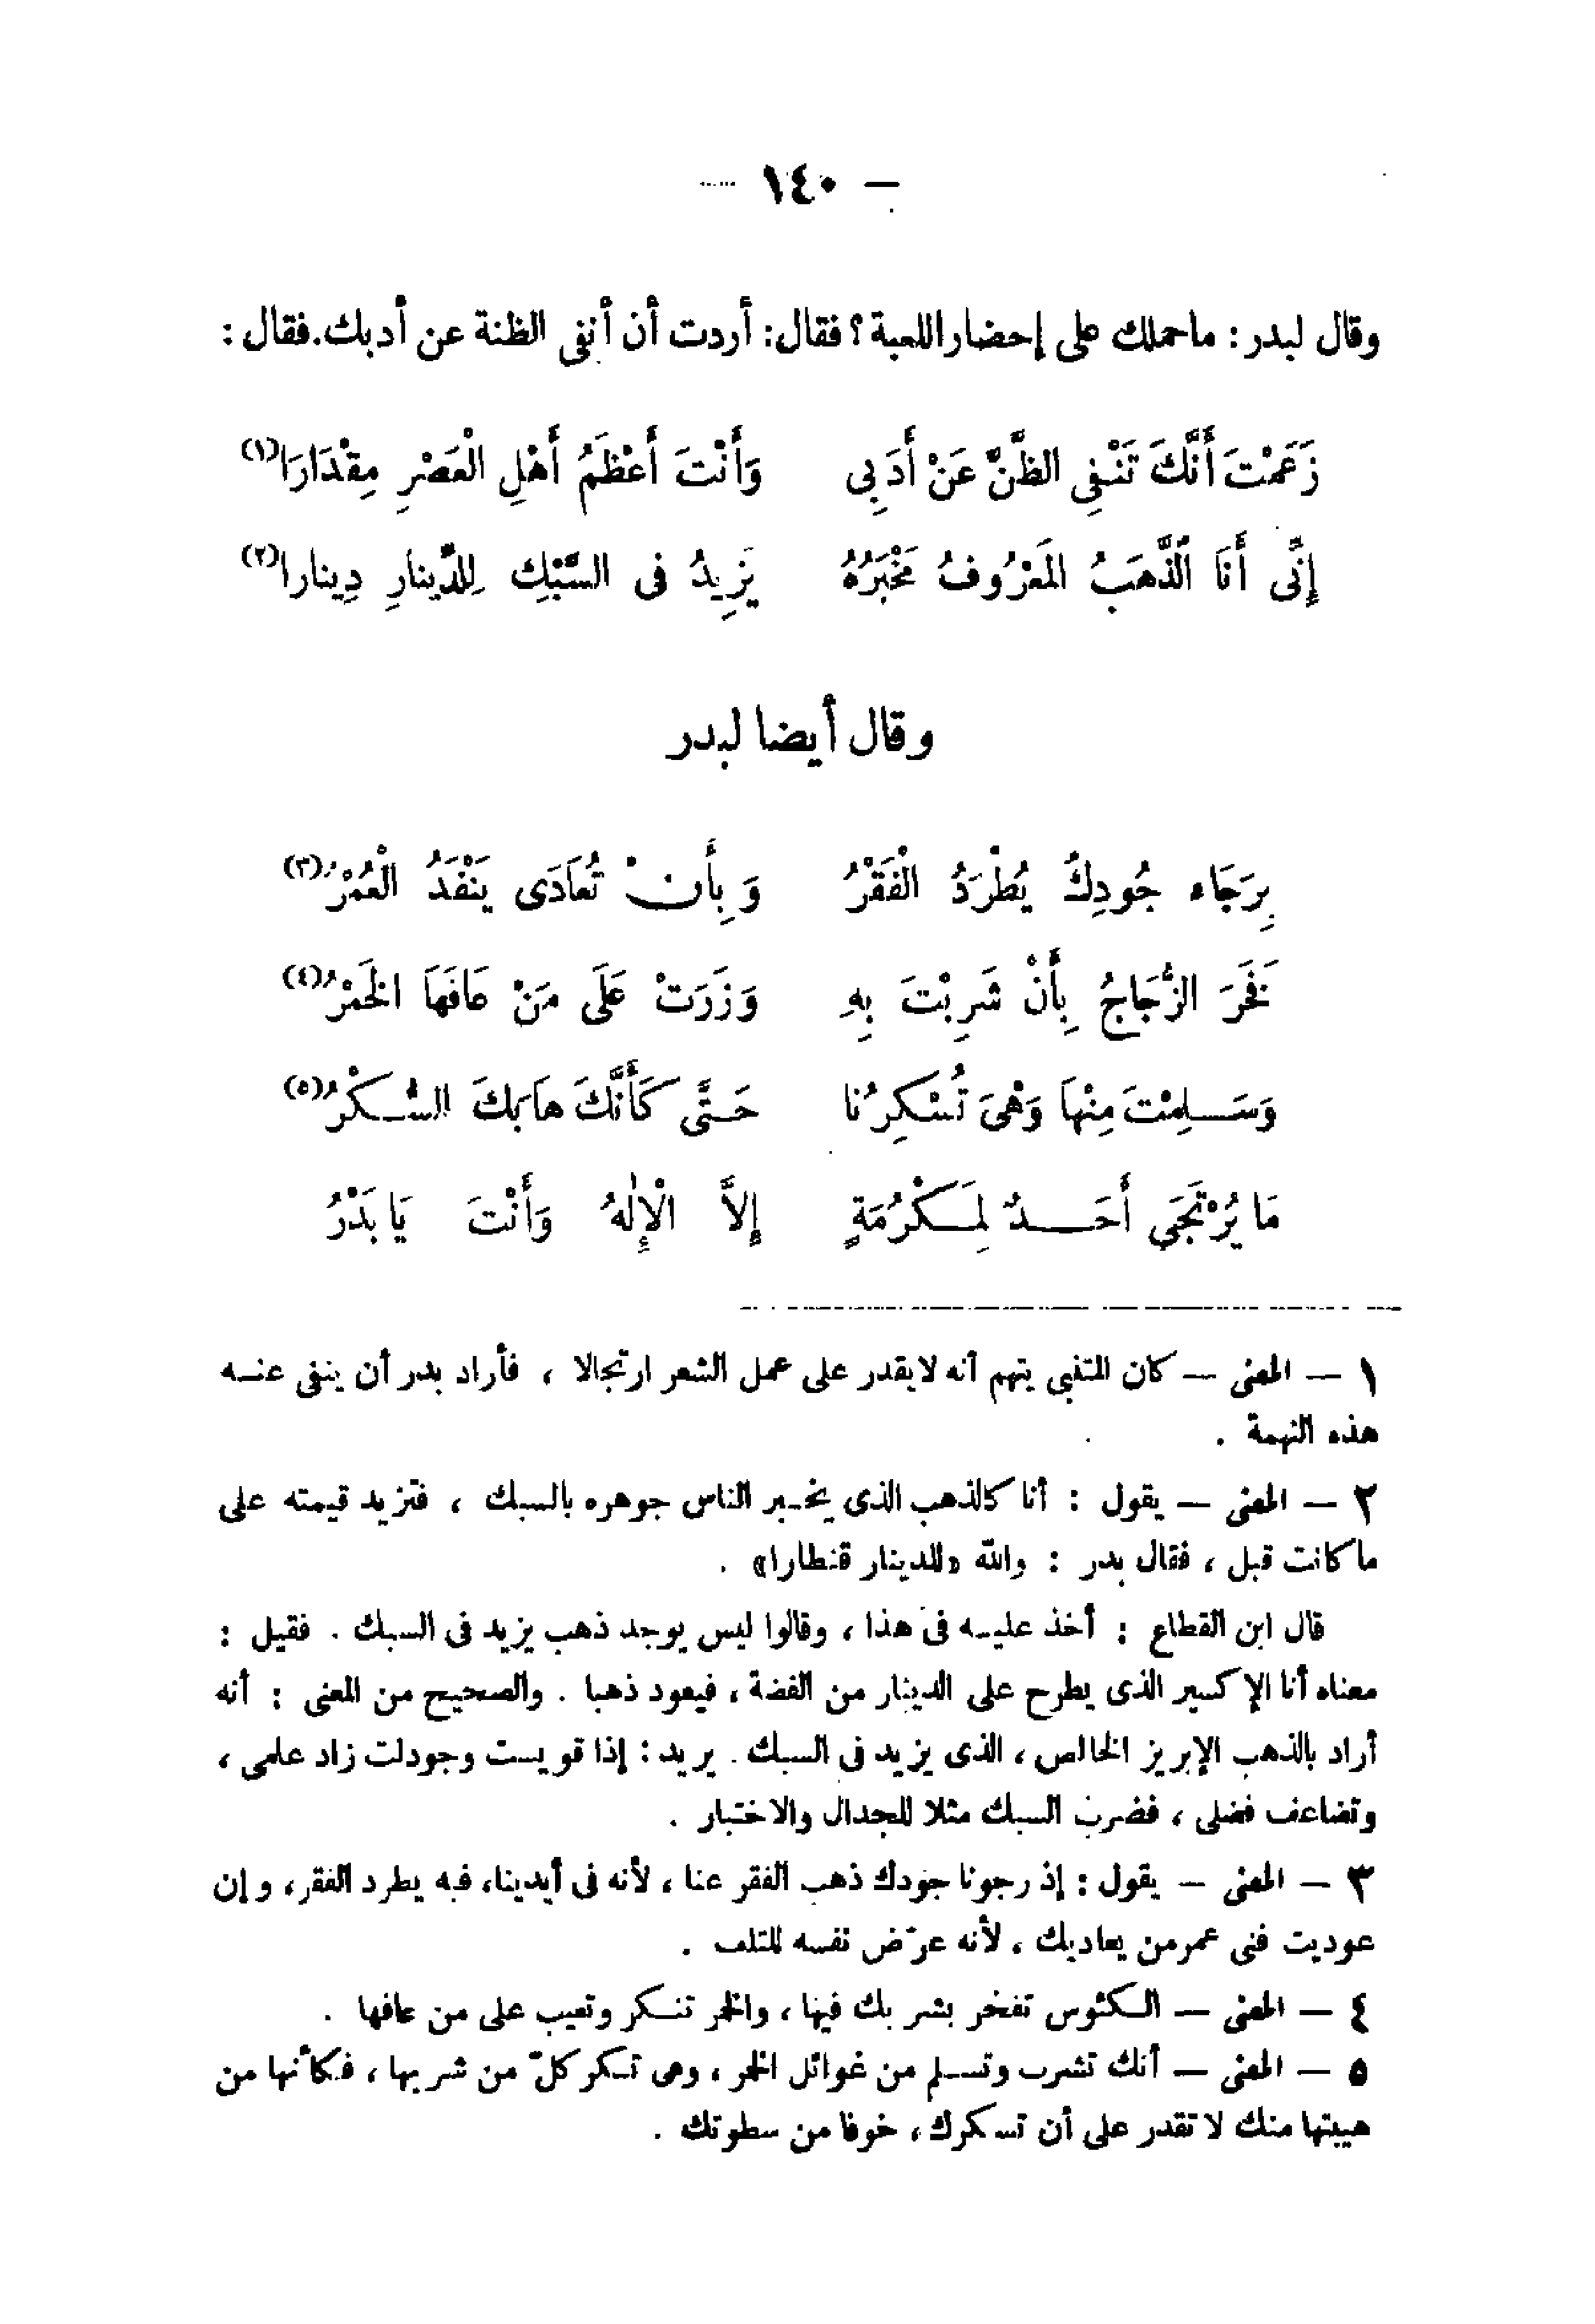 — ١٤٠ —
وقال لبدر : ماحملك على إحضار اللعبة ؟ فقال: أردت أن أنفى الظنة عن أدبك. فقال :
زَعَمْتَ أَنَّكَ تَنْفِى الظَّنَّ عَنْ أَدَبِى وَأَنْتَ أَعْظَمُ أَهْلِ الْعَصْرِ مِقْدَارَا(١)
إِنِّى أَنَا الذَّهَبُ المَعْرُوفُ مَخْبَرُهُ يَزِيدُ فى السَّبْكِ لِلدِّينارِ دِينارا(٢)
وقال أيضا لبدر
بِرَجَاء جُودِكَ يُطْرَدُ الْفَقْرُ وَبِأَنْ تُعَادَى يَنْفَدُ الْعُمْرُ(٣)
فَخَرَ الزُّجَاجُ بِأَنْ شَرِبْتَ بِهِ وَزَرَتْ عَلَى مَنْ عَافَهَا الخَمْرُ(٤)
وَسَلِمْتَ مِنْهَا وَهْىَ تُسْكِرُنا حَتَّى كَأَنَّكَ هَابَكَ السُّكْرُ(٥)
مَا يُرْتَجَى أَحَدٌ لِمَكْرُمَةٍ إِلاَّ الْإِلٰهُ وَأَنْتَ يَا بَدْرُ
١ — المعنى — كان المتنبى يتهم أنه لايقدر على عمل الشعر ارتجالا ، فأراد بدر أن ينفى عنه
هذه التهمة .
٢ — المعنى — يقول : أنا كالذهب الذى يخبر الناس جوهره بالسبك ، فتزيد قيمته على
ما كانت قبل ، فقال بدر : والله «للدينار قنطارا» .
قال ابن القطاع : أخذ عليه فى هذا ، وقالوا ليس يوجد ذهب يزيد فى السبك . فقيل :
معناه أنا الإكسير الذى يطرح على الدينار من الفضة ، فيعود ذهبا . والصحيح من المعنى : أنه
أراد بالذهب الإبريز الخالص ، الذى يزيد فى السبك . يريد : إذا قويست وجودلت زاد علمى ،
وتضاعف فضلى ، فضرب السبك مثلا للجدال والاختبار .
٣ — المعنى — يقول : إذ رجونا جودك ذهب الفقر عنا ، لأنه فى أيدينا، فبه يطرد الفقر، وإن
عوديت فنى عمر من يعاديك ، لأنه عرّض نفسه للتلف .
٤ — المعنى — الكئوس تفخر بشربك فيها ، والخمر تنكر وتعيب على من عافها .
٥ — المعنى — أنك تشرب وتسلم من غوائل الخمر ، وهى تسكر كلّ من شربها ، فكأنها من
هيبتها منك لا تقدر على أن تسكرك ، خوفا من سطوتك .